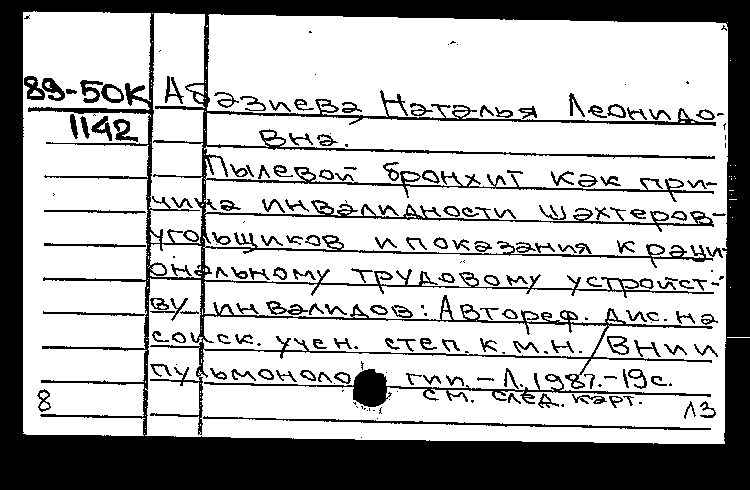 89-50К Абазиева, Наталья Леонидо-
1142 вна.
Пылевой бронхит как при-
чина инвалидности шахтеров-
угольщиков и показания к раци-
ональному трудовому устройст-
ву инвалидов: Автореф. дис. на
соиск. учен. степ. к.м.н. / ВНИИ
пульмонологии. – Л., 1987. – 19 с.
см. след. карт.
8 13